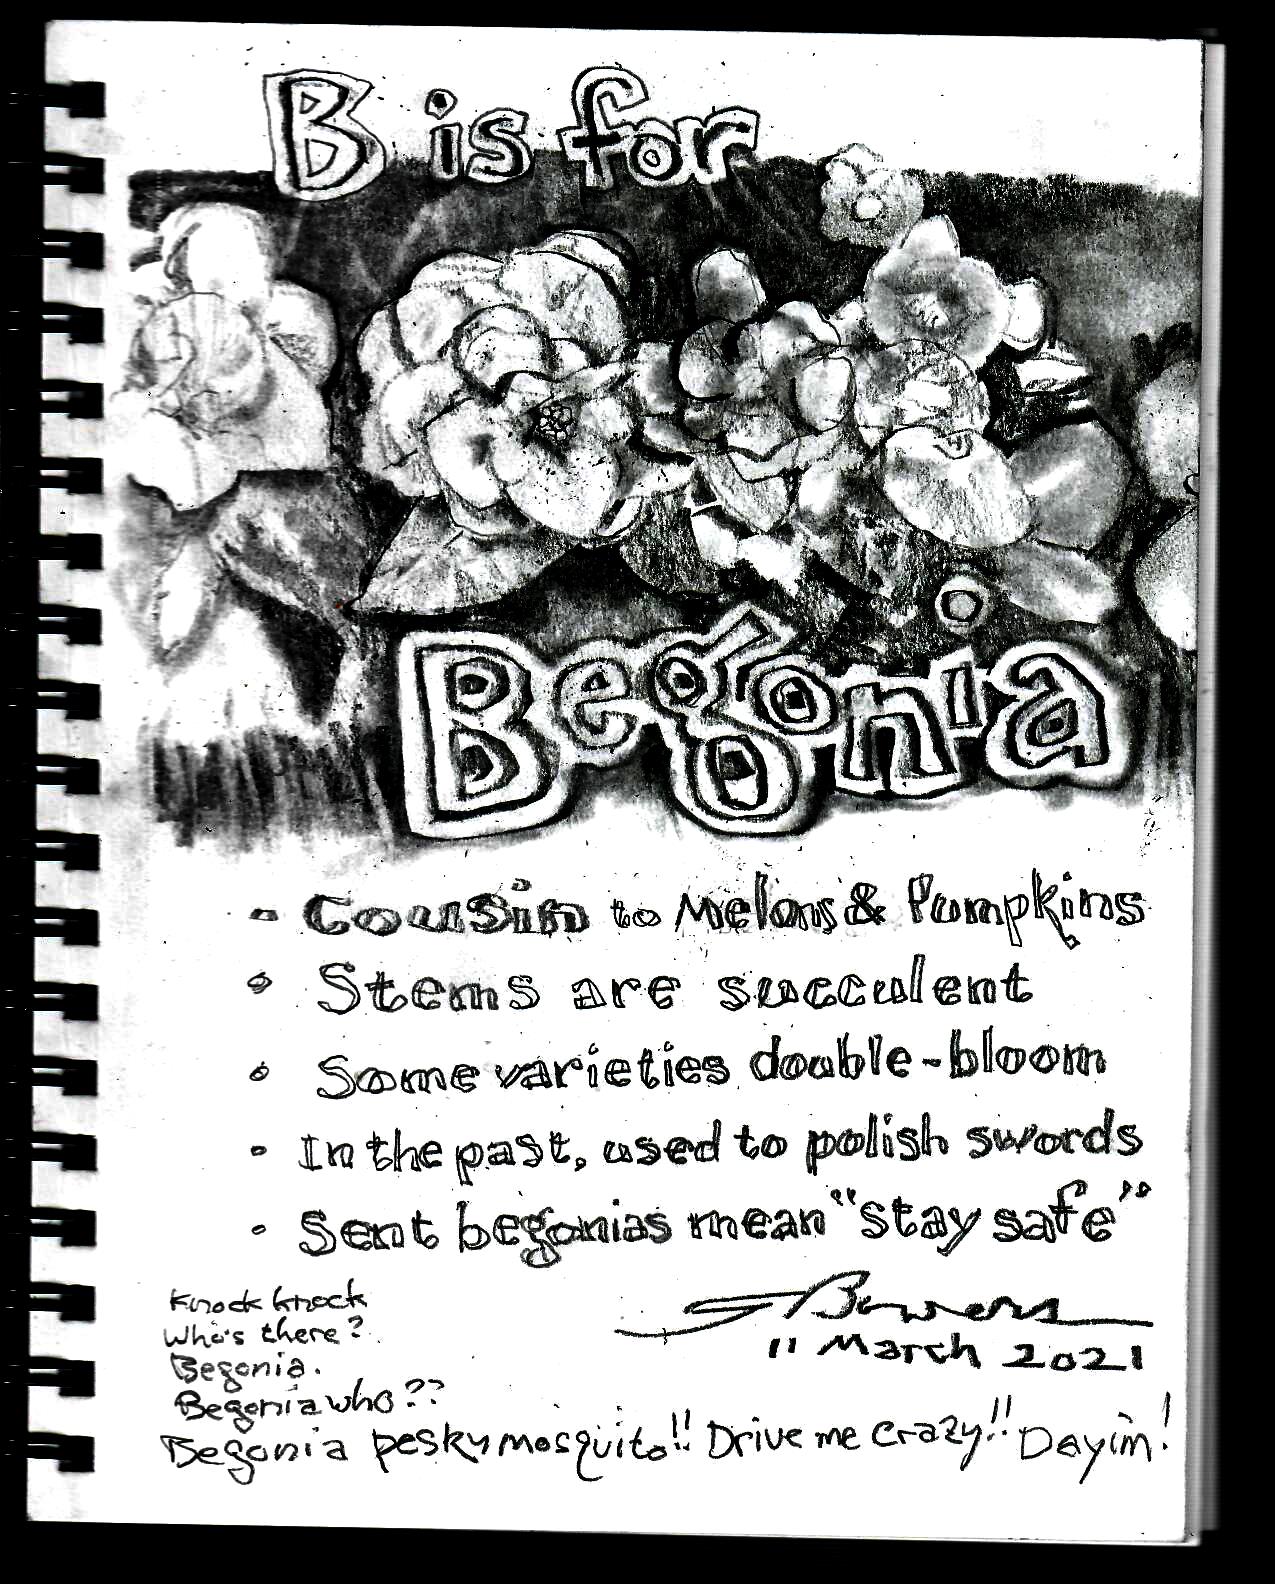 B is for
Begonia
- Cousin to Melons & Pumpkins
• Stems are succulent
• Some varieties double-bloom
• In the past, used to polish swords
• Sent begonias mean "stay safe"
Knock knock
Who's there?
Begonia.
Begonia who??
Begonia pesky mosquito!! Drive me crazy!!
Bowers
11 March 2021